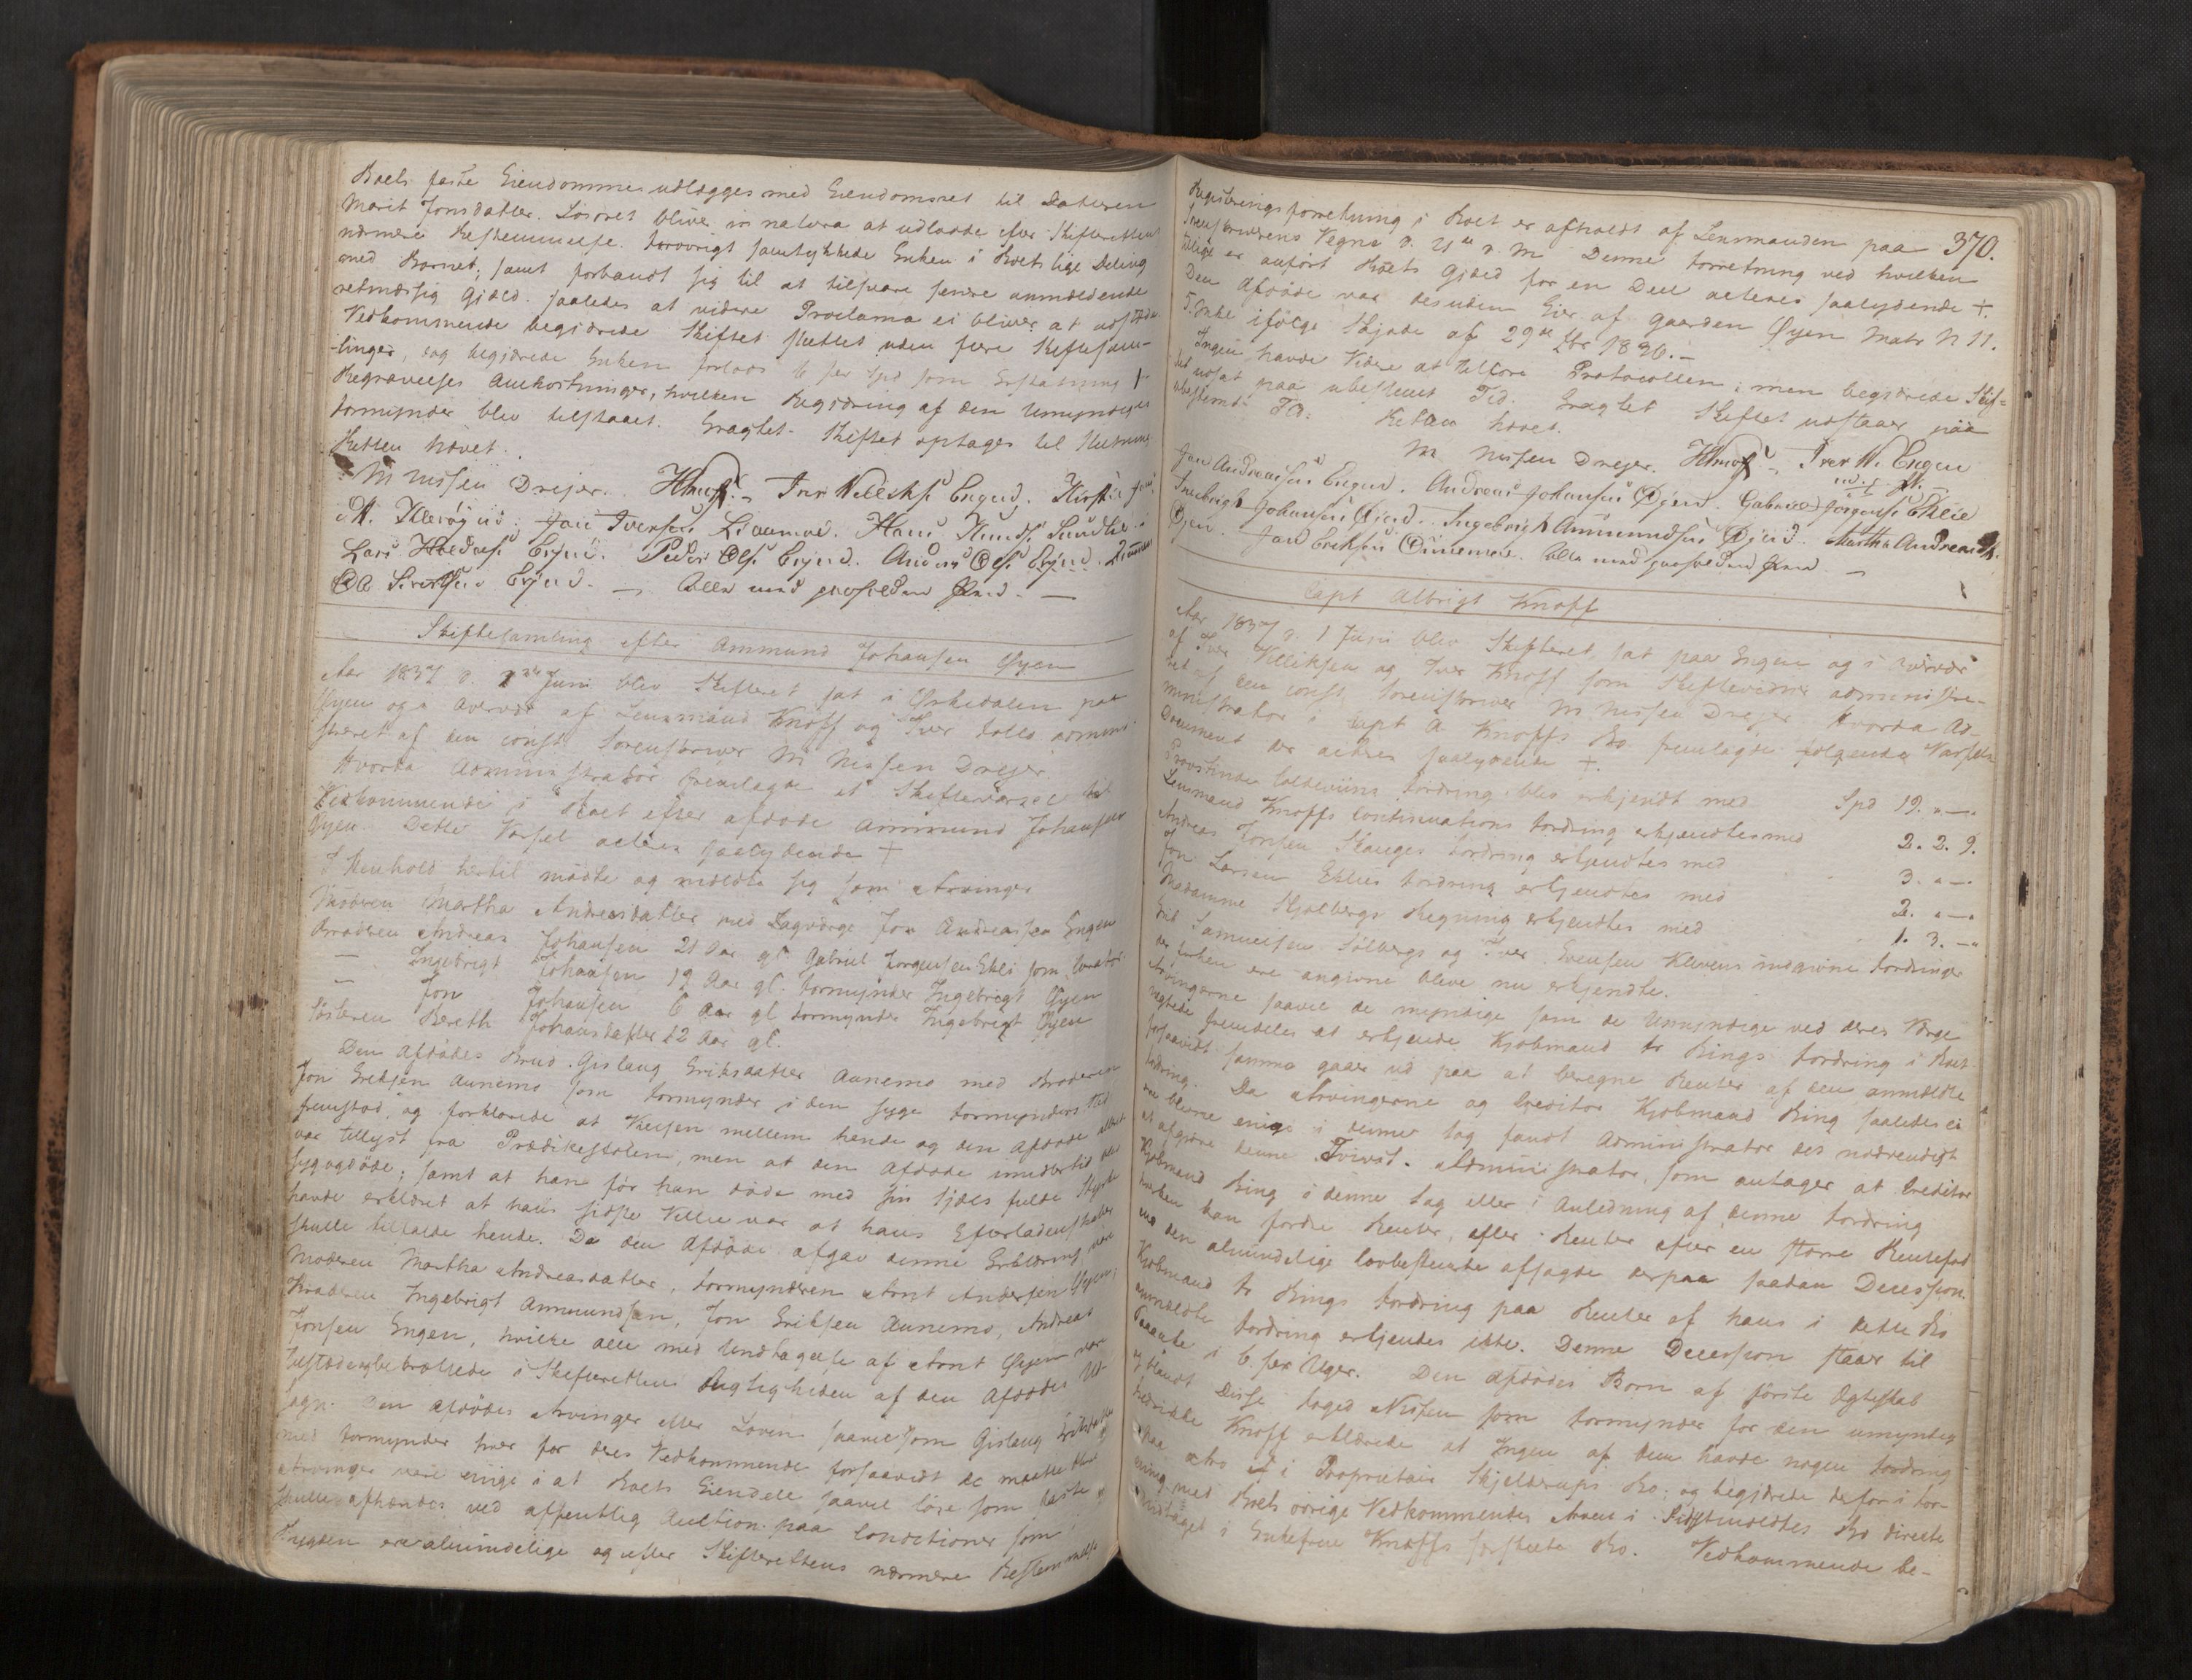 Boets faste Eiendomme udlægges med Eiendomsret til Datteren
Marit Jonsdatter. Løsøret bliver in natura at udlodde efter Skifterettens
nærmere Bestemmelse. Forøvrigt samtykkede Enken i Boets lige Deling
med Barnet, samt forbandt sig til at tilsvare senere anmeldende
retmæssig Gjæld. saaledes at videre Proclama ei bliver at udstæde
Vedkommende begjærede Skiftet sluttet uden flere Skiftesam-
linger, og begjærede Enken forlods 6 sex Spd som Erstatning for
Begravelses Omkostninger, hvilken Begjæring af den Umyndiges
Formynder blev tilstaaet. Eragtet. Skiftet optages til Slutning
Retten hævet.
M Nissen Drejer. HKnoff. Iver Vellichs. Engen. Kirsti
Jon Iversen Liaamoe. Hans Knuds.
Lars Peder Ols. Anders Ols.
Ole Alle med paaholden Pen.
Skiftesamling efter Ammund Johansen Øyen
Aar 1837 d. 1ste Juni blev Skifteret sat i Ørkedalen paa
Øyen og i Overvær af Lensmand Knoff og Iver admini
streret af den const. Sorenskriver M Nissen Drejer.
Hvorda Administrator fremlagde et Skiftevarsel til
Vedkommende i Boet efter afdøde Ammund Johansen
Øyen. Dette Varsel acteres saalydende +
I Henhold hertil mødte og meldte sig som Arvinger
Moderen Martha Andreasdatter med Laugværge Jon Andreassen Engen
Broderen Andreas Johansen 21 Aar gl. Gabriel Jørgensen Ekli som Curator
— Ingebrigt Johansen 19 Aar gl. Formynder Ingebrigt Øyen
— Jon Johansen 6 Aar gl Formynder Ingebrigt Øyen
Søsteren Bereth Johansdatter 12 Aar gl.
Den Afdødes Brud Gislaug Eriksdatter Aunemo med Broderen
Jon Eriksen Aunemo som Formynder i den syge Formynders Sted
fremstod, og forklarede at Vielsen mellem hende og den Afdøde
var tillyst fra Prædikestolen, men at den Afdøde imidlertid
syg og døde; samt at han før han døde med sin Sjæls fulde Styrke
havde erklæret at hans sidste Villie var at hans Efterladenskaber
skulle tilfalde hende. Da den Afdøde afgav denne Erklæring var
Moderen Martha Andreasdatter, Formynderen Arnt Andersen Øyen,
Broderen Ingebrigt Ammundsen, Jon Eriksen Aunemo, Andreas
Jonsen Engen, hvilke alle med Undtagelse af Arnt Øyen vare
tilstæde og bekræftede i Skifteretten Rigtigheden af den Afdødes Ud-
sagn. Den Afdødes Arvinger efter Loven saavelsom Gislaug Eriksdatter
med Formynder hver for deres Vedkommende forsaavidt de maatte blive
Arvinger vare enige i at Boets Eiendele saavel løse som faste
skulle afhændes ved offentlig Auction paa Conditioner som i
Bygden ere almindelige og efter Skifterettens nærmere Bestemmelse
370.
Registeringsforretning i Boet er afholdt af Lensmanden paa
Sorenskriverens Vegne d. 21de d. M. Denne Forretning ved hvilken
tillige er anført Boets Gjæld for en Deel acteres saalydende +.
Den Afdøde var desuden Eier af Gaarden Øyen Matr N 11.
ifølge Skjøde af 29de 1830.—
Ingen havde Videre at tilføre Protocollen, men begjærede Skif-
tet udsat paa ubestemt Tid. Eragtet Skiftet udstaaer paa
ubestemt Tid. Retten hævet.
M. Nissen Drejer. HKnoff. Iver V. Engen
Jon Andreassen Engen. Andreas Johansen Øjen. Gabriel Jørgens. Eklie
Ingebrigt Johansen Øjen. Ingebrigt Ammundsen Øjen. Martha Andreasdt.
Øjen. Jon Eriksen Alle med paaholden Pen.
Capt Albrigt Knoff
Aar 1837 d. 1 Juni blev Skifteret sat paa Engen og i Overvær
af Iver Velliksen og Iver Knoff som Skiftevidner administre-
ret af den const. Sorenskriver M Nissen Drejer Hvorda Ad-
ministrator i Capt A. Knoffs Bo fremlagde følgende Varsels
Document der acteres saalydende +.
Provstinde Fordring blev erkjendt med Spd 19. „ —.
Lensmand Knoffs Continuations Fordring erkjendtes med 2. 2. 9.
Andreas Jonsen Stanges Fordring erkjendtes med 3. „ —.
Jon Larsen Eklies Fordring erkjendtes med 2. „ —.
Madamme Kjelbergs Regning erkjendtes med 1. 3. —.
Samuelsen Sølbergs og Iver Evensen Klevens indgivne Fordringer
der forhen ere angivne bleve nu erkjendte.
Arvingerne saavel de myndige som de Umyndige ved deres Værge
negtede fremdeles at erkjende Kjøbmand Fr Rings Fordring i Boet
forsaavidt samme gaaer ud paa at beregne Renter af den anmeldte
Fordring. Da Arvingerne og Creditor Kjøbmand Ring saaledes ei
ere blevne enige i denne Sag fandt Administrator det nødvendigt
at afgjøre denne Tvivst. Administrator, som antager at Creditor
Kjøbmand Ring i denne Sag eller i Anledning af denne Fordring
hverken kan fordre Renter, eller Renter efter en større Rentefod
end den almindelige lovbestemte afsagde derpaa saadan Decession.
Kjøbmand Fr Rings Fordring paa Renter af hans i dette Bo
anmeldte Fordring erkjendes ikke. Denne Decession staar til
Paaanke i 6 sex Uger. Den Afdødes Børn af første Ægteskab
og blandt Disse Foged Nissen som Formynder for den umyndige
Knoff erklærede at Ingen af dem havde nogen Fordring
paa Arv i Proprietair Skjelderups Bo, og begjærede derfor i For-
ening med Boets øvrige Vedkommende Arven i Sidstmeldtes Bo directe
inddraget i Enkefrue Knoffs særskilte Bo. Vedkommende be-